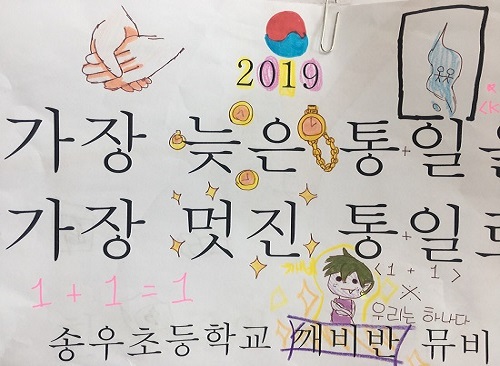 2019
가장 늦은 통일을
가장 멋진 통일로
1 + 1 = 1
<1 + 1>
우리는 하나다
송우초등학교 깨비반 뮤비